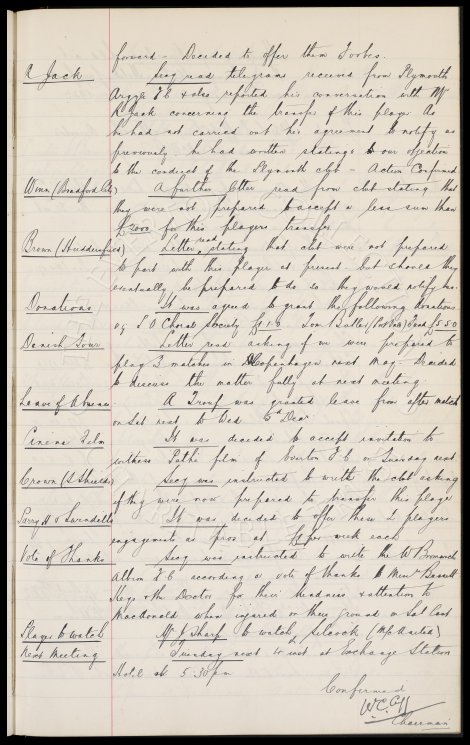 forward – Decided to offer them Forbes.
R Jack Secy read telegrams received from Plymouth
Argyle F C & also reported his conversation with Mr
R Jack concerning the transfer of this player. As
he had not carried out his agreement to notify as
previously he had written stating to our
to the conduct of the Plymouth club – Action Confirmed
Winn (Bradford City) A further letter read from club stating that
they were not prepared to accept a less sum than
£2000 for this players transfer
Brown (Huddersfield) Letter read stating that club were not prepared
to part with this player at present but should they
eventually be prepared to do so they would notify us.
Donations It was agreed to grant the following donations
eg S O Choral Society £1.1.0 Tom (Post Boxes) Fund £5.5.0
Danish Tour Letter read asking if we were prepared to
play 3 matches in Copenhagen next May. Decided
to discuss the matter fully at next meeting.
Leave of Absence A Troup was granted leave from after match
on Sat next to Wed 6th Decr.
Cinema Film It was decided to accept invitation to
witness Pathe film of Everton F C on Tuesday next
Crown (S Shields) Secy was instructed to write the club asking
if they were now prepared to transfer this player
Parry H & Swindells It was decided to offer these 2 players
engagements as pros at per week each
Vote of Thanks Secy was instructed to write the W Bromwich
Albion F C according a vote of thanks to Messrs Bassett
Keys & the Doctor for their kindness & attention to
Macdonald when injured on their ground on Sat last
Player to watch Mr J Sharp to watch Silcock (M/c United)
Next Meeting Tuesday next 14 inst at Exchange Station
Hotel at 5:30pm
Confirmed
W.C. Cuff
Chairman